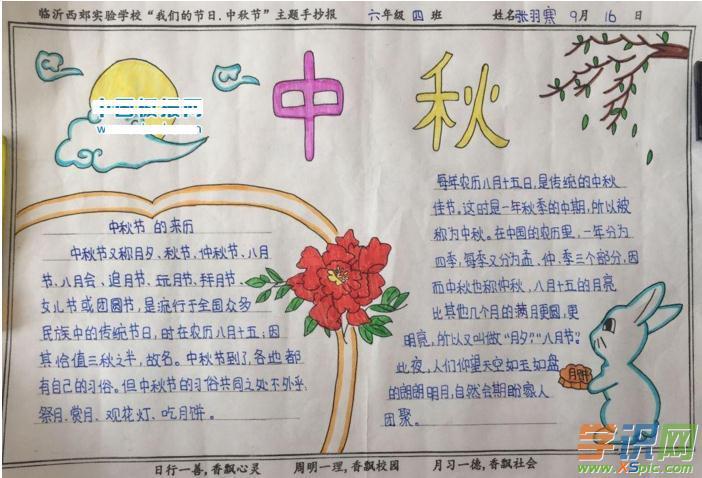 临沂西郊实验学校“我们的节日.中秋节”主题手抄报 六年级 四 班 姓名 张羽寒 9月 16 日
中 秋
中秋节 的来历
中秋节又称月夕、秋节、仲秋节、八月
节、八月会、追月节、玩月节、拜月节、
女儿节或团圆节，是流行于全国众多
民族中的传统节日，时在农历八月十五；因
其恰值三秋之半，故名。中秋节到了，各地都
有自己的习俗。但中秋节的习俗共同之处不外乎
祭月、赏月、观花灯、吃月饼。
每年农历八月十五日，是传统的中秋
佳节。这时是一年秋季的中期，所以被
称为中秋。在中国的农历里，一年分为
四季，每季又分为孟、仲、季三个部分，因
而中秋也称仲秋，八月十五的月亮
比其他几个月的满月更圆，更
明亮，所以又叫做“月夕”“八月节”。
此夜，人们仰望天空如玉如盘
的朗朗明月，自然会期盼家人
团聚。
月饼
日行一善，香飘心灵 周明一理，香飘校园 月习一德，香飘社会
学识网
www.XSpic.com